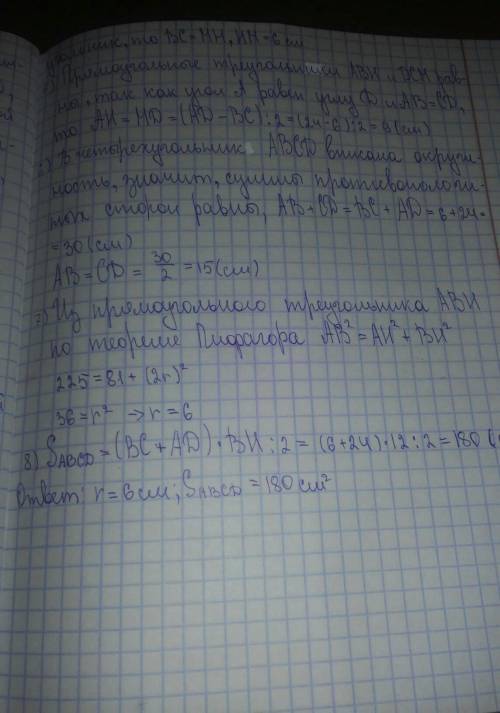 то BC = HH, HH = 6 см
) Прямоугольные треугольники ABH и DCH рав-
ны, так как угол A равен углу D и AB = CD,
то AH = HD = (AD - BC) : 2 = (24 - 6) : 2 = 9 (см)
) В четырехугольник ABCD вписана окруж-
ность, значит, суммы противополож-
ных сторон равны, AB + CD = BC + AD = 6 + 24 =
= 30 (см)
AB = CD = 30/2 = 15 (см)
7) Из прямоугольного треугольника ABH
по теореме Пифагора AB² = AH² + BH²
225 = 81 + (2r)²
36 = r² → r = 6
8) S ABCD = (BC + AD) · BH : 2 = (6 + 24) · 12 : 2 = 180 (
Ответ: r = 6 см; S ABCD = 180 см²